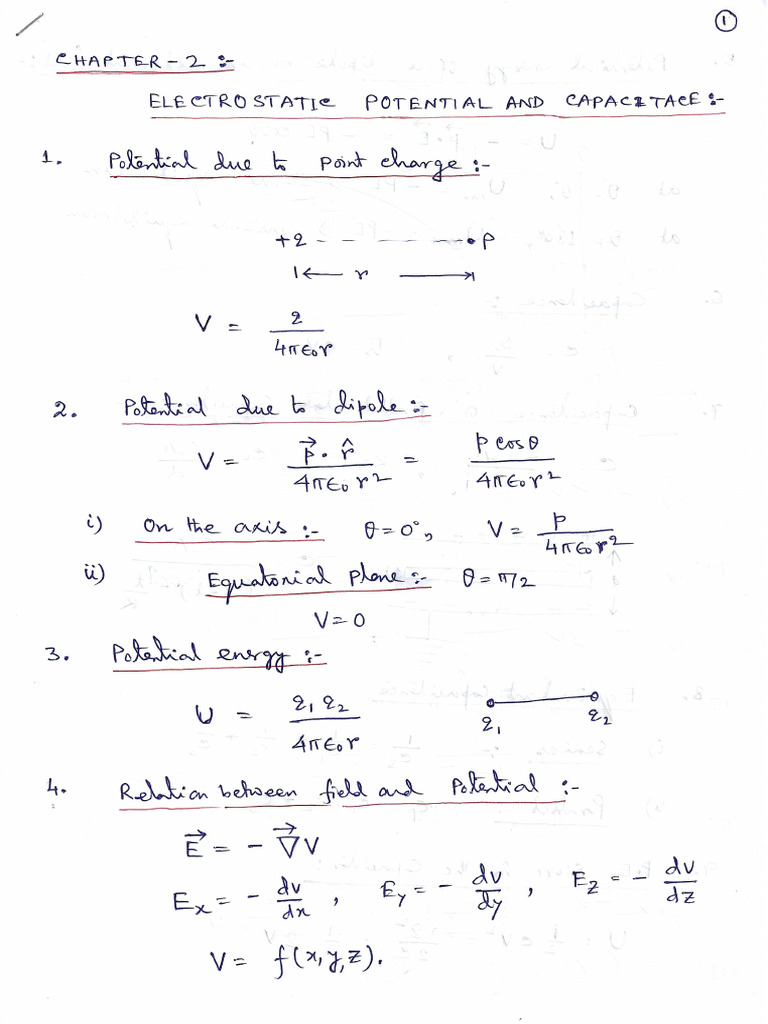 1
CHAPTER-2 :-
ELECTROSTATIC POTENTIAL AND CAPACITACE :-
1. Potential due to point charge :-
+q - - - - - - - • P
|← r →|
V = q / 4πϵ₀r
2. Potential due to dipole :-
V = p⃗ · r̂ / 4πϵ₀r² = p cosθ / 4πϵ₀r²
i) On the axis :- θ = 0°, V = p / 4πϵ₀r²
ii) Equatorial plane :- θ = π/2
V = 0
3. Potential energy :-
U = q₁ q₂ / 4πϵ₀r
q₁ q₂
4. Relation between field and Potential :-
E⃗ = - ∇⃗V
Eₓ = - dv/dx , Ey = - dv/dy , Ez = - dv/dz
V = f(x,y,z).